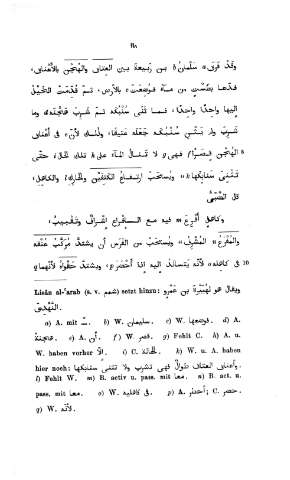 ٦٨
وقد فرق a سلمان b بن ربيعة بين العتاق والهجن بالأعناق،
فدعا بطست من ماء فوضعت c بالأرض، ثم قدمت الخيل
اليها واحدا واحدا، فما ثنى سنبكه ثم شرب هجنه d وما
شرب ولم يثن سنبكه جعله عتيقا، وذلك لأن e فى أعناق
5 الهجن قصرا f فهى g لا تنال الماء على h تلك الحال i حتى
تثنى سنابكها k ويستحب ارتفاع الكتفين والحارك l والكاهل،
قال الضبى
وكاهل أفرع m فيه مع الـ إفراع إشراف وتقبيب،
والمفرع n المشرف، ويستحب من الفرس أن يشتد مركب عنقه
10 فى كاهله o لأنه يتساند اليه اذا أحضر p ويشتد حقواه لأنهما q
Lisân al-'arab (s. v. شمم) setzt hinzu: ويقال هو لهبيرة بن عمرو
النهدى.
a) A. mit b) W. سليمان. c) W. فوضعها. d) A.
e) A. أن. f) W. قصر. g) Fehlt C. h) A. u.
W. haben vorher الا. i) C. k) W. u. A. haben
hier noch: وأعناق العتاق طوال فهى تشرب ولا تثنى سنابكها.
l) Fehlt W. m) B. activ u. pass. mit معا. n) B. act. u.
pass. mit معا. o) W. فى كاهليه. p) A. أحتذر; C. حضر.
q) W. لأنه.